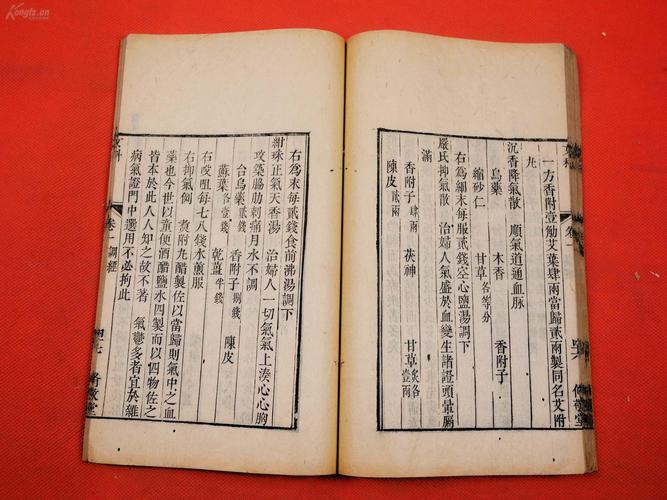 女科 卷一
一方香附壹觔艾葉肆兩當歸貳兩製同名艾附
丸
沉香降氣散 順氣道通血脉
烏藥 木香 香附子
縮砂仁 甘草各等分
右為細末每服貳錢空心鹽湯調下
嚴氏抑氣散 治婦人氣盛於血變生諸證頭暈膈
滿
香附子肆兩 茯神 甘草炙各壹兩
陳皮貳兩
右為末每貳錢食前沸湯調下
紺珠正氣天香湯 治婦人一切氣氣上湊心心胸
攻築脇肋刺痛月水不調
台烏藥貳錢 香附子捌錢 陳皮
蘇葉各壹錢 乾薑半錢
右㕮咀每七八錢水煎服
右抑氣例 附先醋製佐以當歸則氣中之血
藥也今世以童便酒醋鹽水四製而以四物佐之
皆本於此人人知之故不著 氣鬱多者宜於雜
病氣證門中選用不必拘此
女科 卷一調經 四七
Kongfz.cn